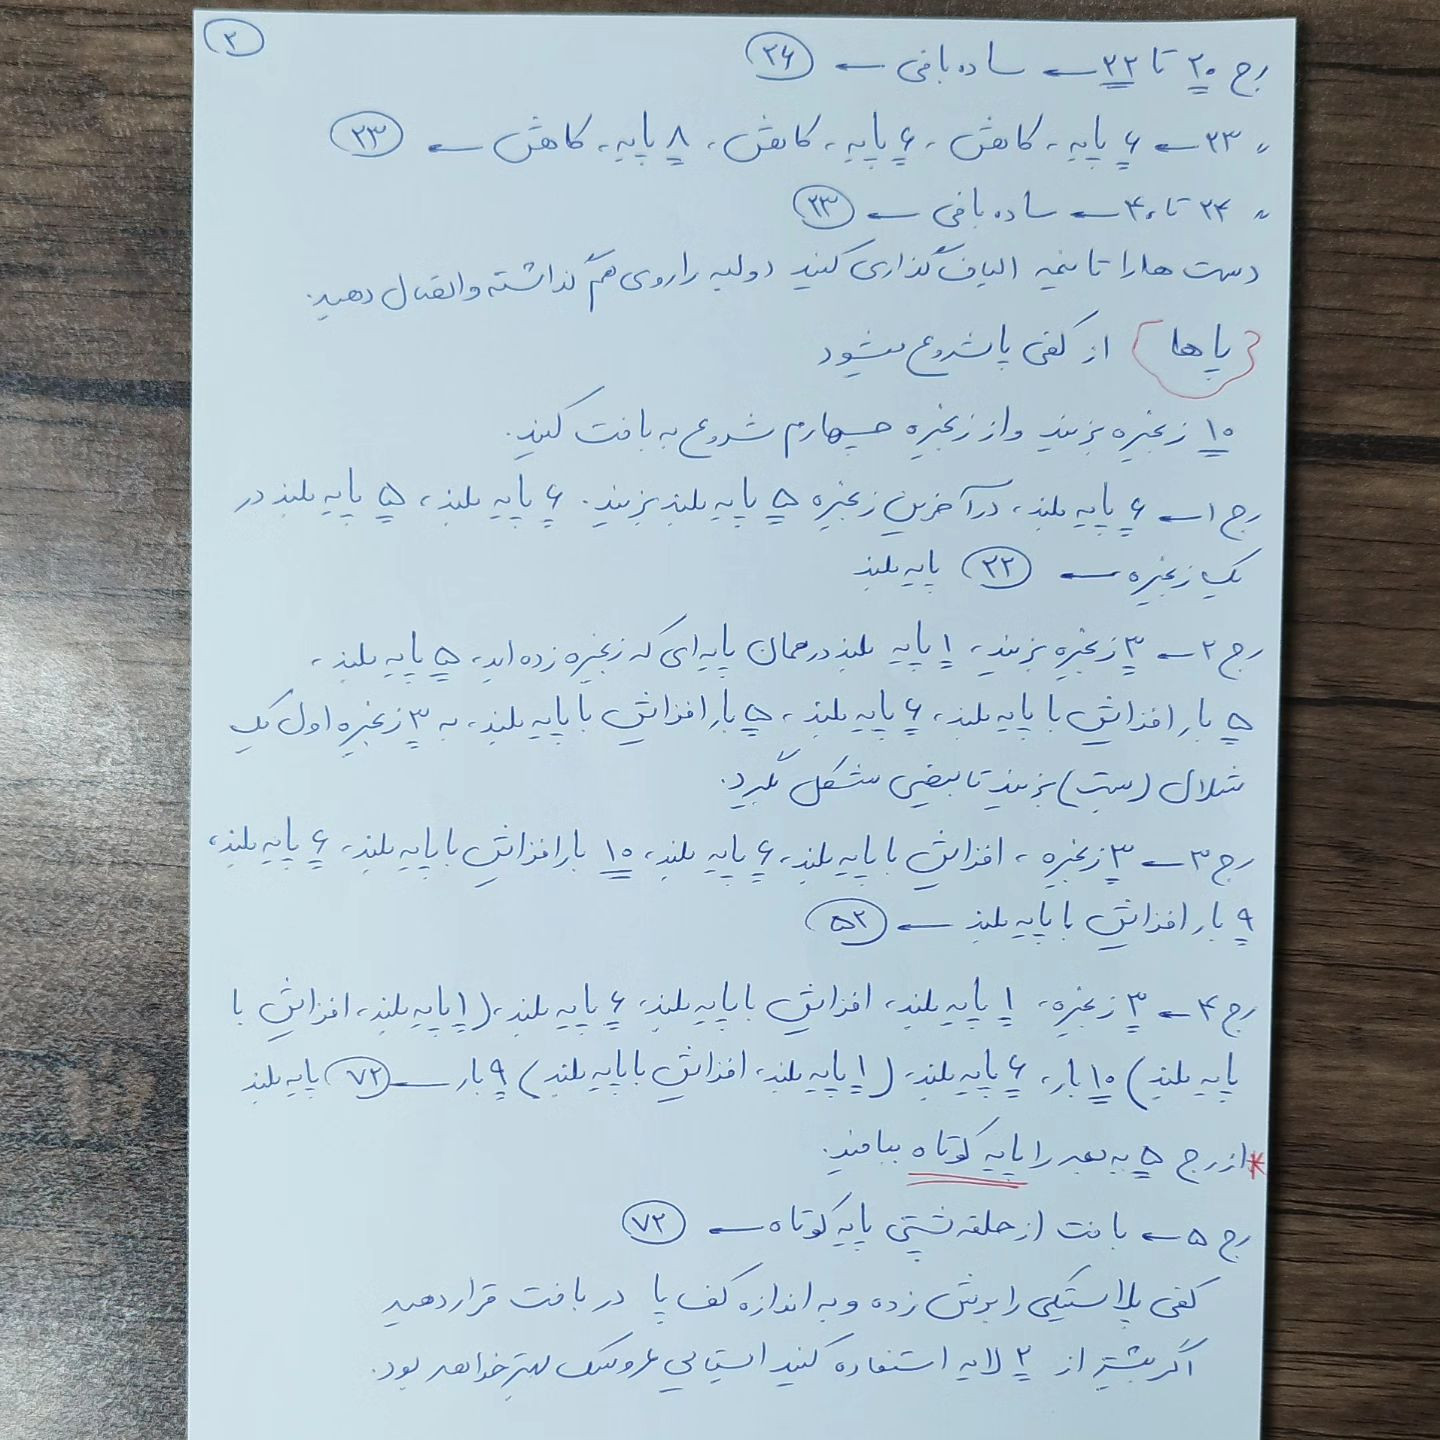 ۲
رج ۲۰ تا ۲۲ ← ساده بافی ← ۲۶
〃 ۲۳ ← ۶ پایه، کاهش، ۶ پایه، کاهش، ۸ پایه، کاهش ← ۲۳
〃 ۲۴ تا ۴۰ ← ساده بافی ← ۲۳
دست ها را تا نیمه الیاف گذاری کنید دولبه را روی هم گذاشته و اتصال دهید.
{پا ها} از کفی پا شروع میشود
۱۰ زنجیره بزنید و از زنجیره چهارم شروع به بافت کنید.
رج ۱ ← ۶ پایه بلند، در آخرین زنجیره ۵ پایه بلند بزنید. ۶ پایه بلند، ۵ پایه بلند در
یک زنجیره ← ۲۲ پایه بلند
رج ۲ ← ۳ زنجیره بزنید، ۱ پایه بلند در همان پایه ای که زنجیره زده اید، ۵ پایه بلند،
۵ بار افزایش با پایه بلند، ۶ پایه بلند، ۵ بار افزایش با پایه بلند، به ۳ زنجیره اول یک
شلال (بست) بزنید تا بیضی شکل گیرد.
رج ۳ ← ۳ زنجیره، افزایش با پایه بلند، ۶ پایه بلند، ۱۰ بار افزایش با پایه بلند، ۶ پایه بلند،
۹ بار افزایش با پایه بلند ← ۵۲
رج ۴ ← ۳ زنجیره، ۱ پایه بلند، افزایش با پایه بلند، ۶ پایه بلند، (۱ پایه بلند، افزایش با
پایه بلند) ۱۰ بار، ۶ پایه بلند، (۱ پایه بلند، افزایش با پایه بلند) ۹ بار ← ۷۲ پایه بلند
* از رج ۵ به بعد را پایه کوتاه ببافید.
رج ۵ ← بافت از حلقه پشتی پایه کوتاه ← ۷۲
کفی پلاستیکی را برش زده و به اندازه کف پا در بافت قرار دهید
اگر بیشتر از ۲ لایه استفاده کنید ایستایی عروسک بهتر خواهد بود.